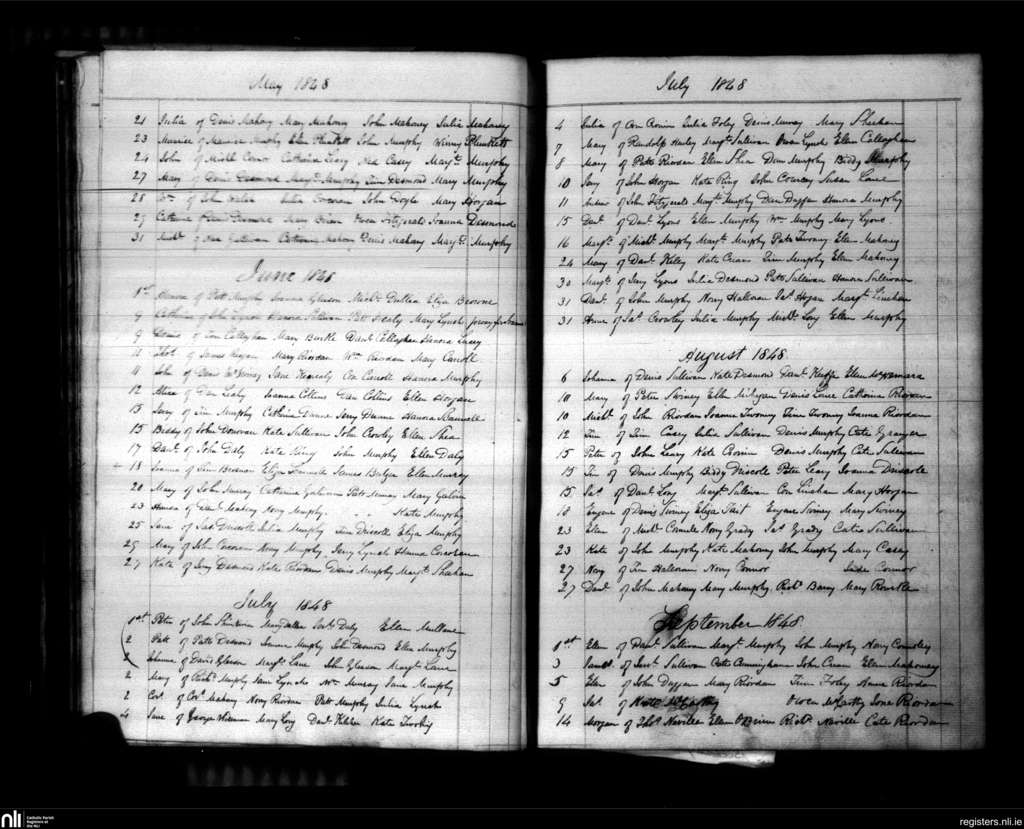 May 1848
21 Julia of Denis Mahony Mary Mahony John Mahoney Julia Mahoney
23 Maurice of Maurice Murphy Ellen Plunkett John Murphy Winny Plunkett
24 John of Michl Connor Catherine Leary Ned Casey Margt Murphy
27 Mary of Denis Desmond Margt Murphy Tim Desmond Mary Murphy
28 Wm of John Corcoran John Doyle Mary Horgan
29 Catherine of Desmond Mary Brien Owen Fitzgerald Joanna Desmond
31 Michl of Sullivan Catherine Mahony Denis Mahony Margt Murphy
June 1848
1st Hanora of Patt Murphy Joanna Gleeson Michl Eliza Browne
9 Catherine of John Lynch Hanora Sullivan Patt Mary Lynch
9 Denis of Tim Callaghan Mary Burke Danl Callaghan Hanora Lucey
11 Thos of James Regan Mary Riordan Wm Riordan Mary Carroll
11 John of Jane Con Carroll Hanora Murphy
12 Alice of Dan Leahy Joanna Collins Dan Collins Ellen Horgan
13 Jerry of Tim Murphy Catherine Dunne Jerry Dunne Hanora
15 Biddy of John Donovan Kate Sullivan John Crowley Ellen Shea
17 Danl of John Daly Kate Ring John Murphy Ellen Daly
18 Joanna of Tim Eliza James Bulger Ellen Murray
20 Mary of John Murray Catherine Galvin Patt Murray Mary Galvin
23 Hanora of Danl Mahony Nony Murphy " " Kate Murphy
25 Jane of Jas Driscoll Julia Murphy Tim Driscoll Eliza Murphy
29 Mary of John Corcoran Nony Murphy Jerry Lynch Hanna Corcoran
27 Kate of Jerry Desmond Kate Riordan Denis Murphy Margt Sheehan
July 1848
1st Peter of John Mary Danl Daly Ellen Mullane
2 Patt of Patt Desmond Joanna Murphy John Desmond Ellen Murphy
2 Johanna of David Gleeson Margt Lane John Gleeson Margt Lane
2 Mary of Richd Murphy Jane Lynch Wm Murray Jane Murphy
2 Cors of Cors Mahony Nony Riordan Patt Murphy Julia Lynch
4 Jane of George Mary Long Danl Kate
July 1848
4 Julia of Con Cronin Julia Foley Denis Murray Mary Sheehan
7 Mary of Randolph Hurley Margt Sullivan Owen Lynch Ellen Callaghan
8 Mary of Patt Riordan Ellen Shea Dan Murphy Biddy Murphy
10 Jerry of John Horgan Kate Ring John Courcey Susan Lane
11 of John Fitzgerald Margt Murphy Dan Duggan Hanora Murphy
15 Danl of Danl Lyons Ellen Murphy Wm Murphy Mary Lyons
16 Margt of Michl Murphy Margt Murphy Patt Twomey Ellen Mahony
24 Mary of Danl Kelly Kate Crean Tim Murphy Ellen Mahony
30 Margt of Jerry Lyons Julia Desmond Patt Sullivan Hanora Sullivan
31 Danl of John Murphy Nony Halloran Jas Hogan Margt Linehan
31 Anne of Jas Crowley Julia Murphy Michl Long Ellen Murphy
August 1848
6 Johanna of Denis Sullivan Kate Desmond Danl Keeffe Ellen McNamara
10 Mary of Peter Swiney Ellen Milligan Denis Catherine Riordan
10 Michl of John Riordan Joanna Twomey Tim Twomey Joanna Riordan
12 Tim of Tim Casey Julia Sullivan Denis Murphy Cate Grainger
15 Peter of John Leary Kate Cronin Denis Murphy Cate Sullivan
15 Tim of Denis Murphy Biddy Driscoll Peter Leary Joanna Driscoll
15 Jas of Danl Long Margt Sullivan Con Linehan Mary Horgan
18 Eugene of Denis Swiney Eliza Tait Eugene Swiney Mary Swiney
23 Ellen of Michl Nony Grady Jas Grady Catie Sullivan
23 Kate of John Murphy Kate Mahoney John Murphy Mary Casey
27 Nony of Tim Halloran Nony Connor Connor
27 Danl of John Mahony Mary Murphy Robt Barry Mary Rourke
September 1848
1st Ellen of Danl Sullivan Margt Murphy John Murphy Nony
3 of Sullivan Cate Cunningham John Crean Ellen Mahoney
5 Ellen of John Duggan Mary Riordan Tim Foley Anne Riordan
9 Jas of McCarthy Owen McCarthy Jane Riordan
14 Morgan of Thos Neville Ellen OBrien Richd Neville Cate Riordan
nli Catholic Parish
Registers at
the NLI
registers.nli.ie